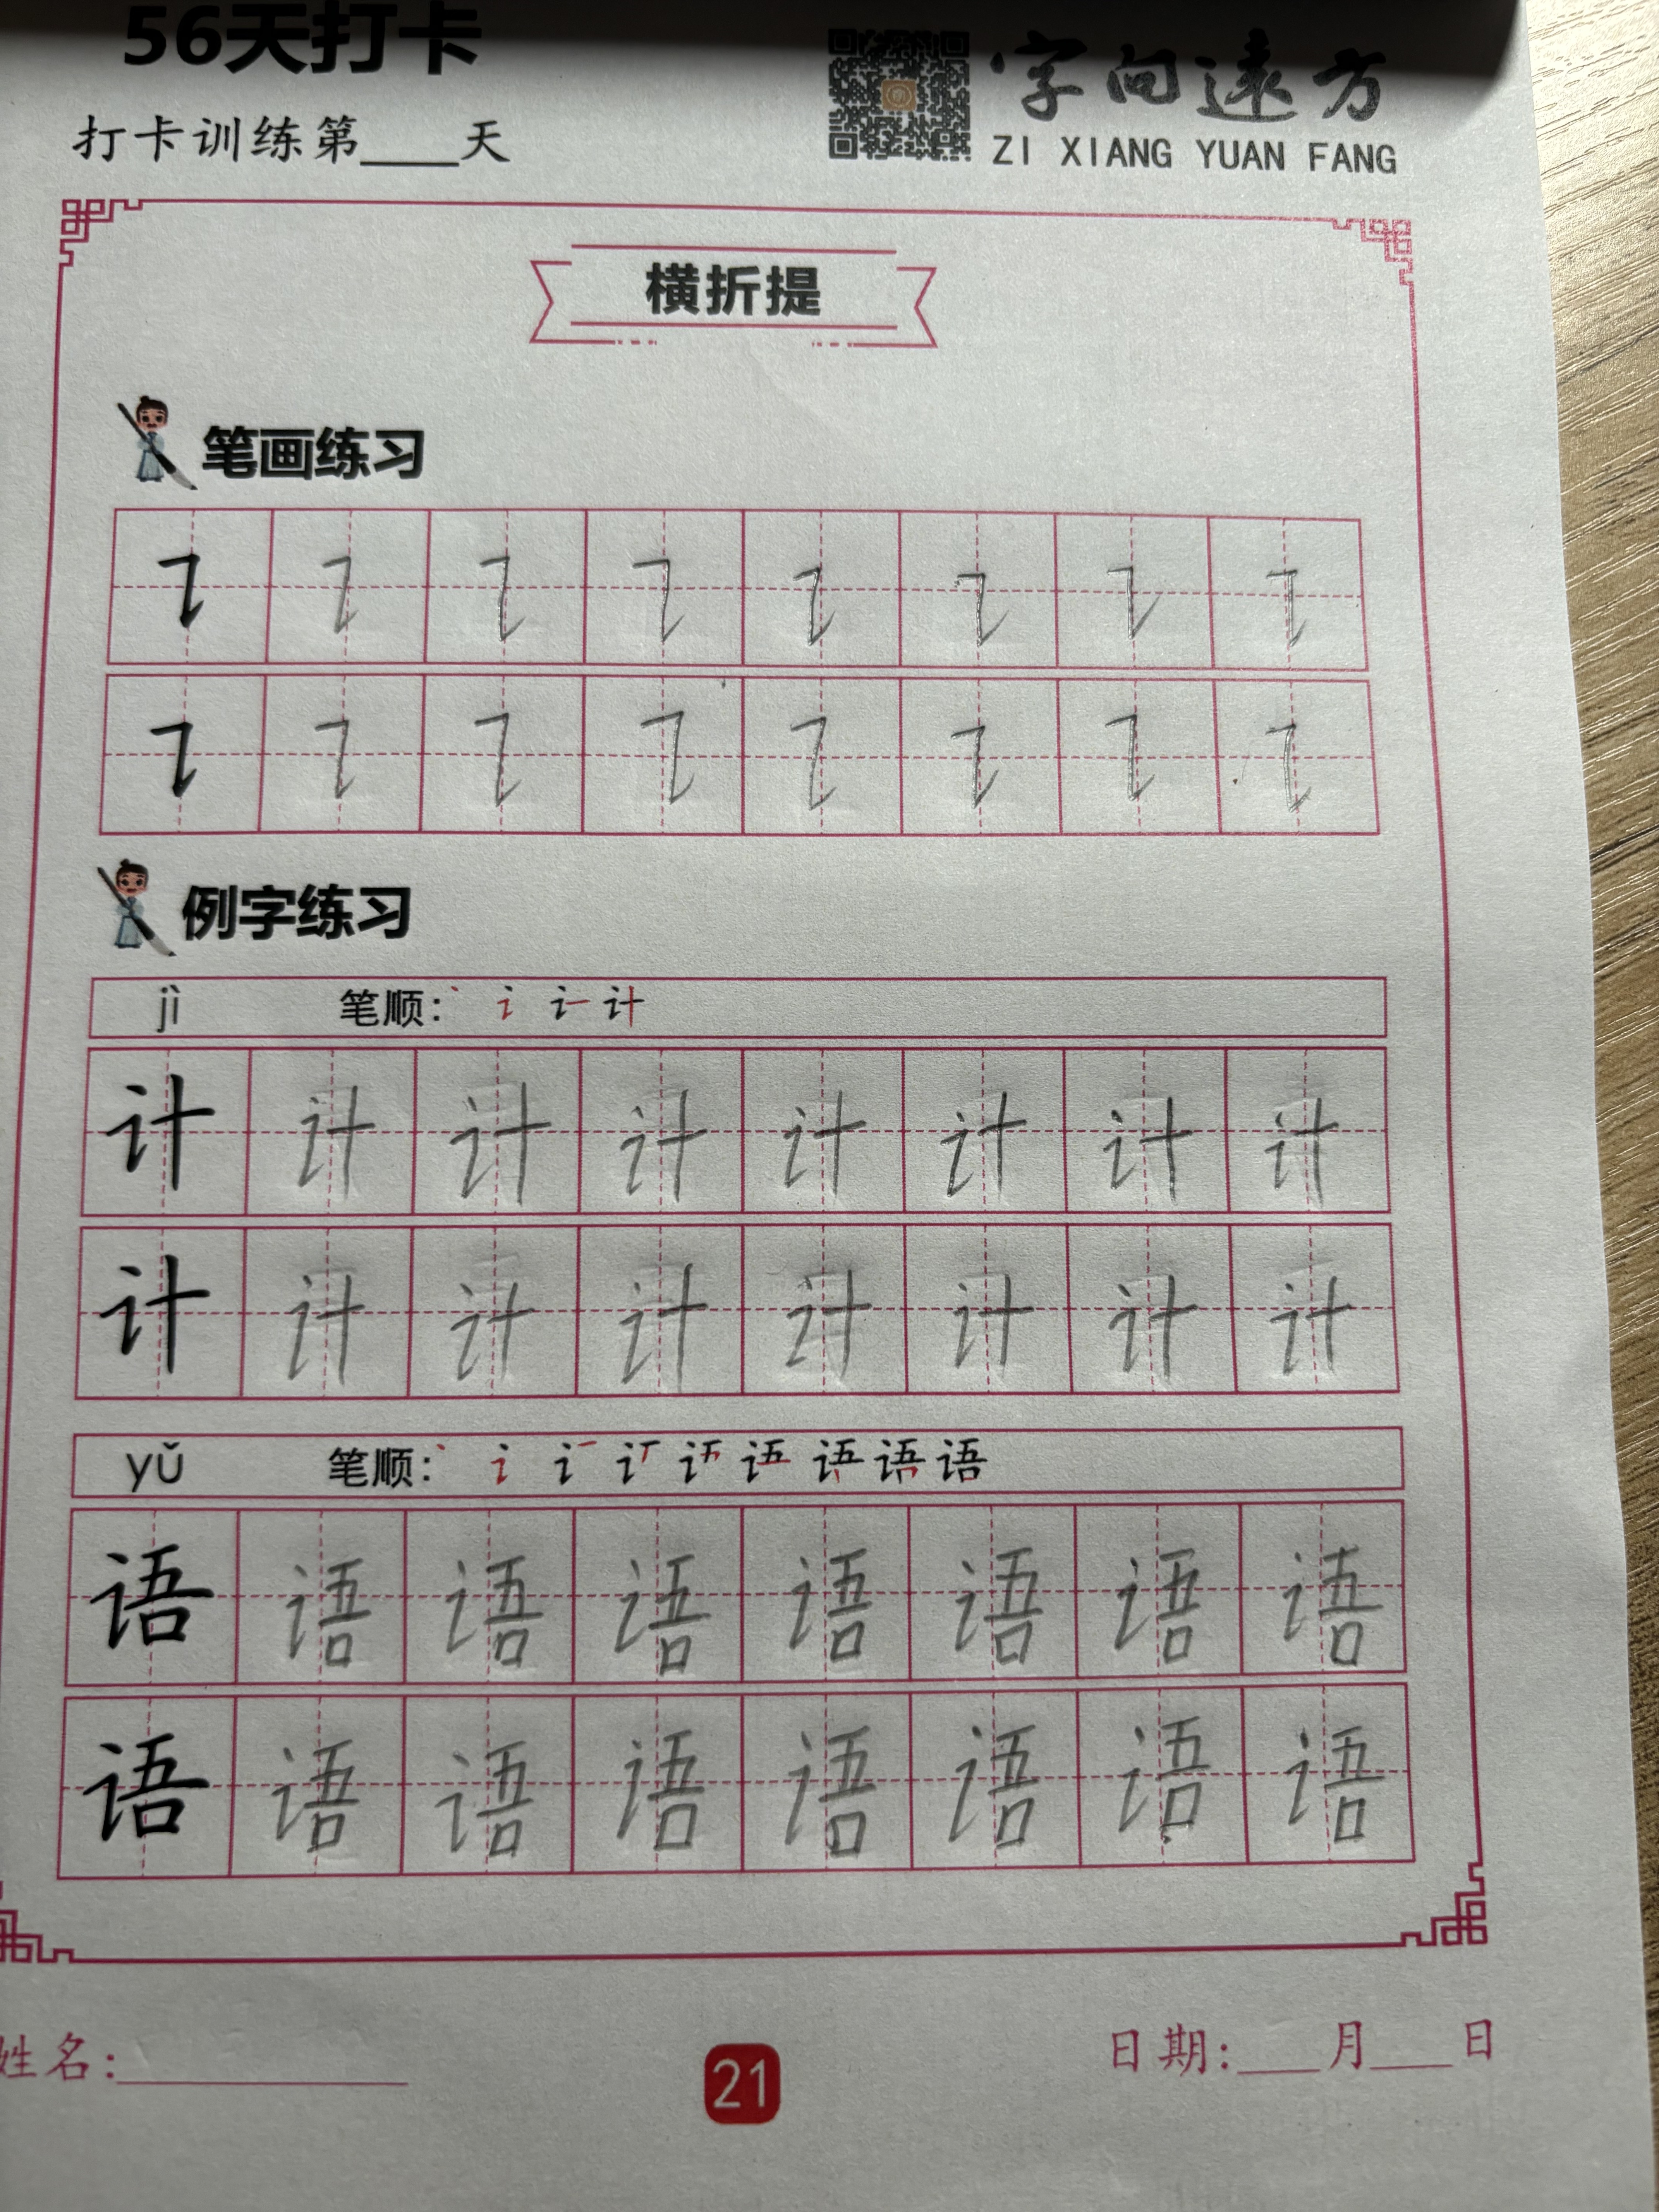 56天打卡
字向远方
打卡训练第____天
ZI XIANG YUAN FANG
横折提
笔画练习
例字练习
jì 笔顺: 丶 讠 计
计 计 计 计 计 计 计 计
计 计 计 计 计 计 计 计
yǔ 笔顺: 丶 讠 语
语 语 语 语 语 语 语 语
语 语 语 语 语 语 语 语
姓名:________ 日期:___月___日
21